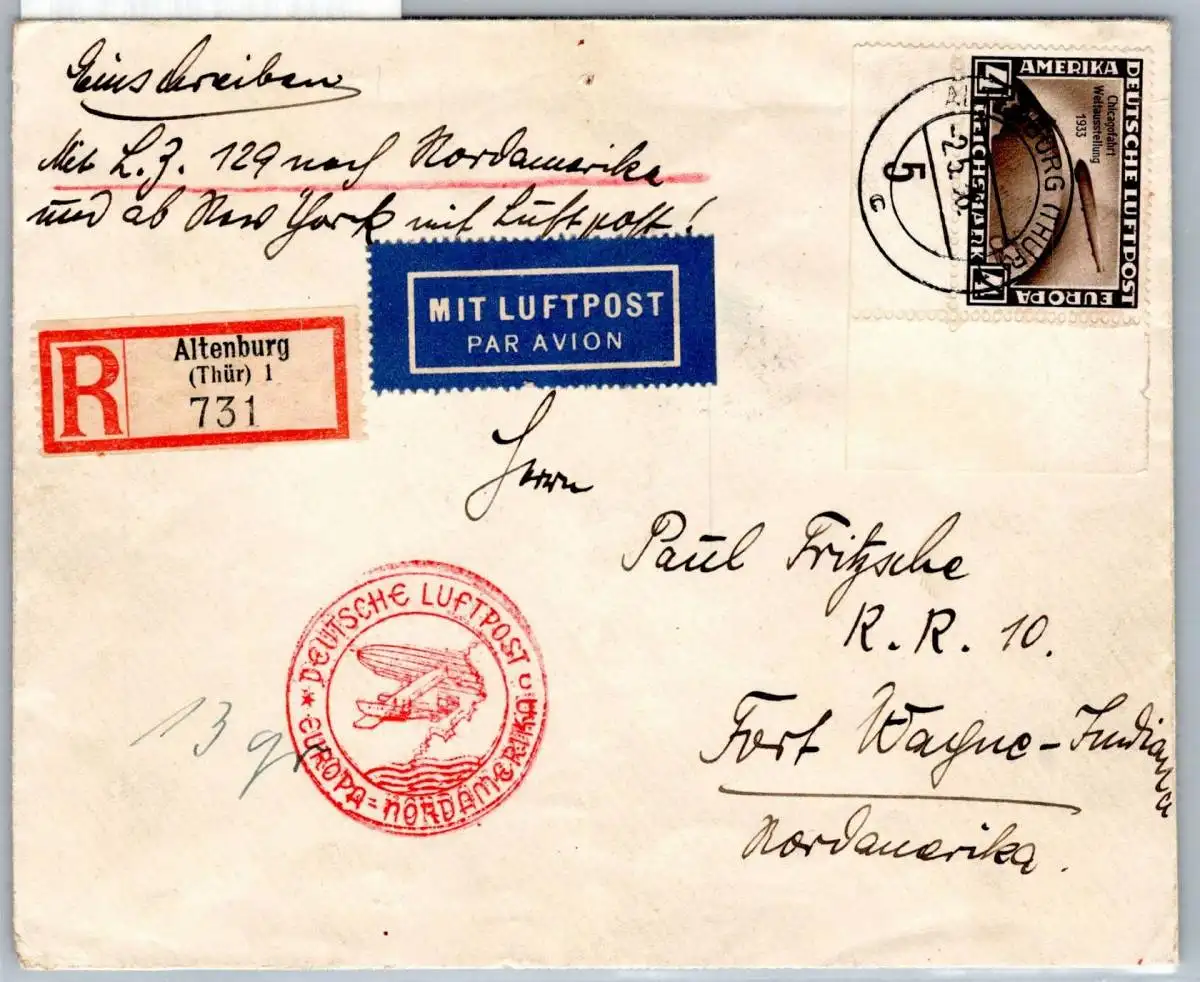 Einschreiben
Mit L.Z. 129 nach Nordamerika
und ab New York mit Luftpost!
MIT LUFTPOST
PAR AVION
R
Altenburg
(Thür) 1
731
DEUTSCHE LUFTPOST
EUROPA
AMERIKA
4 REICHSMARK 4
Chicagofahrt
Weltausstellung
1933
BURG (THÜR
-2.5.
5
c
Herrn
Paul Fritzsche
R. R. 10.
Fort Wayne-Indiana
Nordamerika.
DEUTSCHE LUFTPOST
* EUROPA=NORDAMERIKA
13 gr